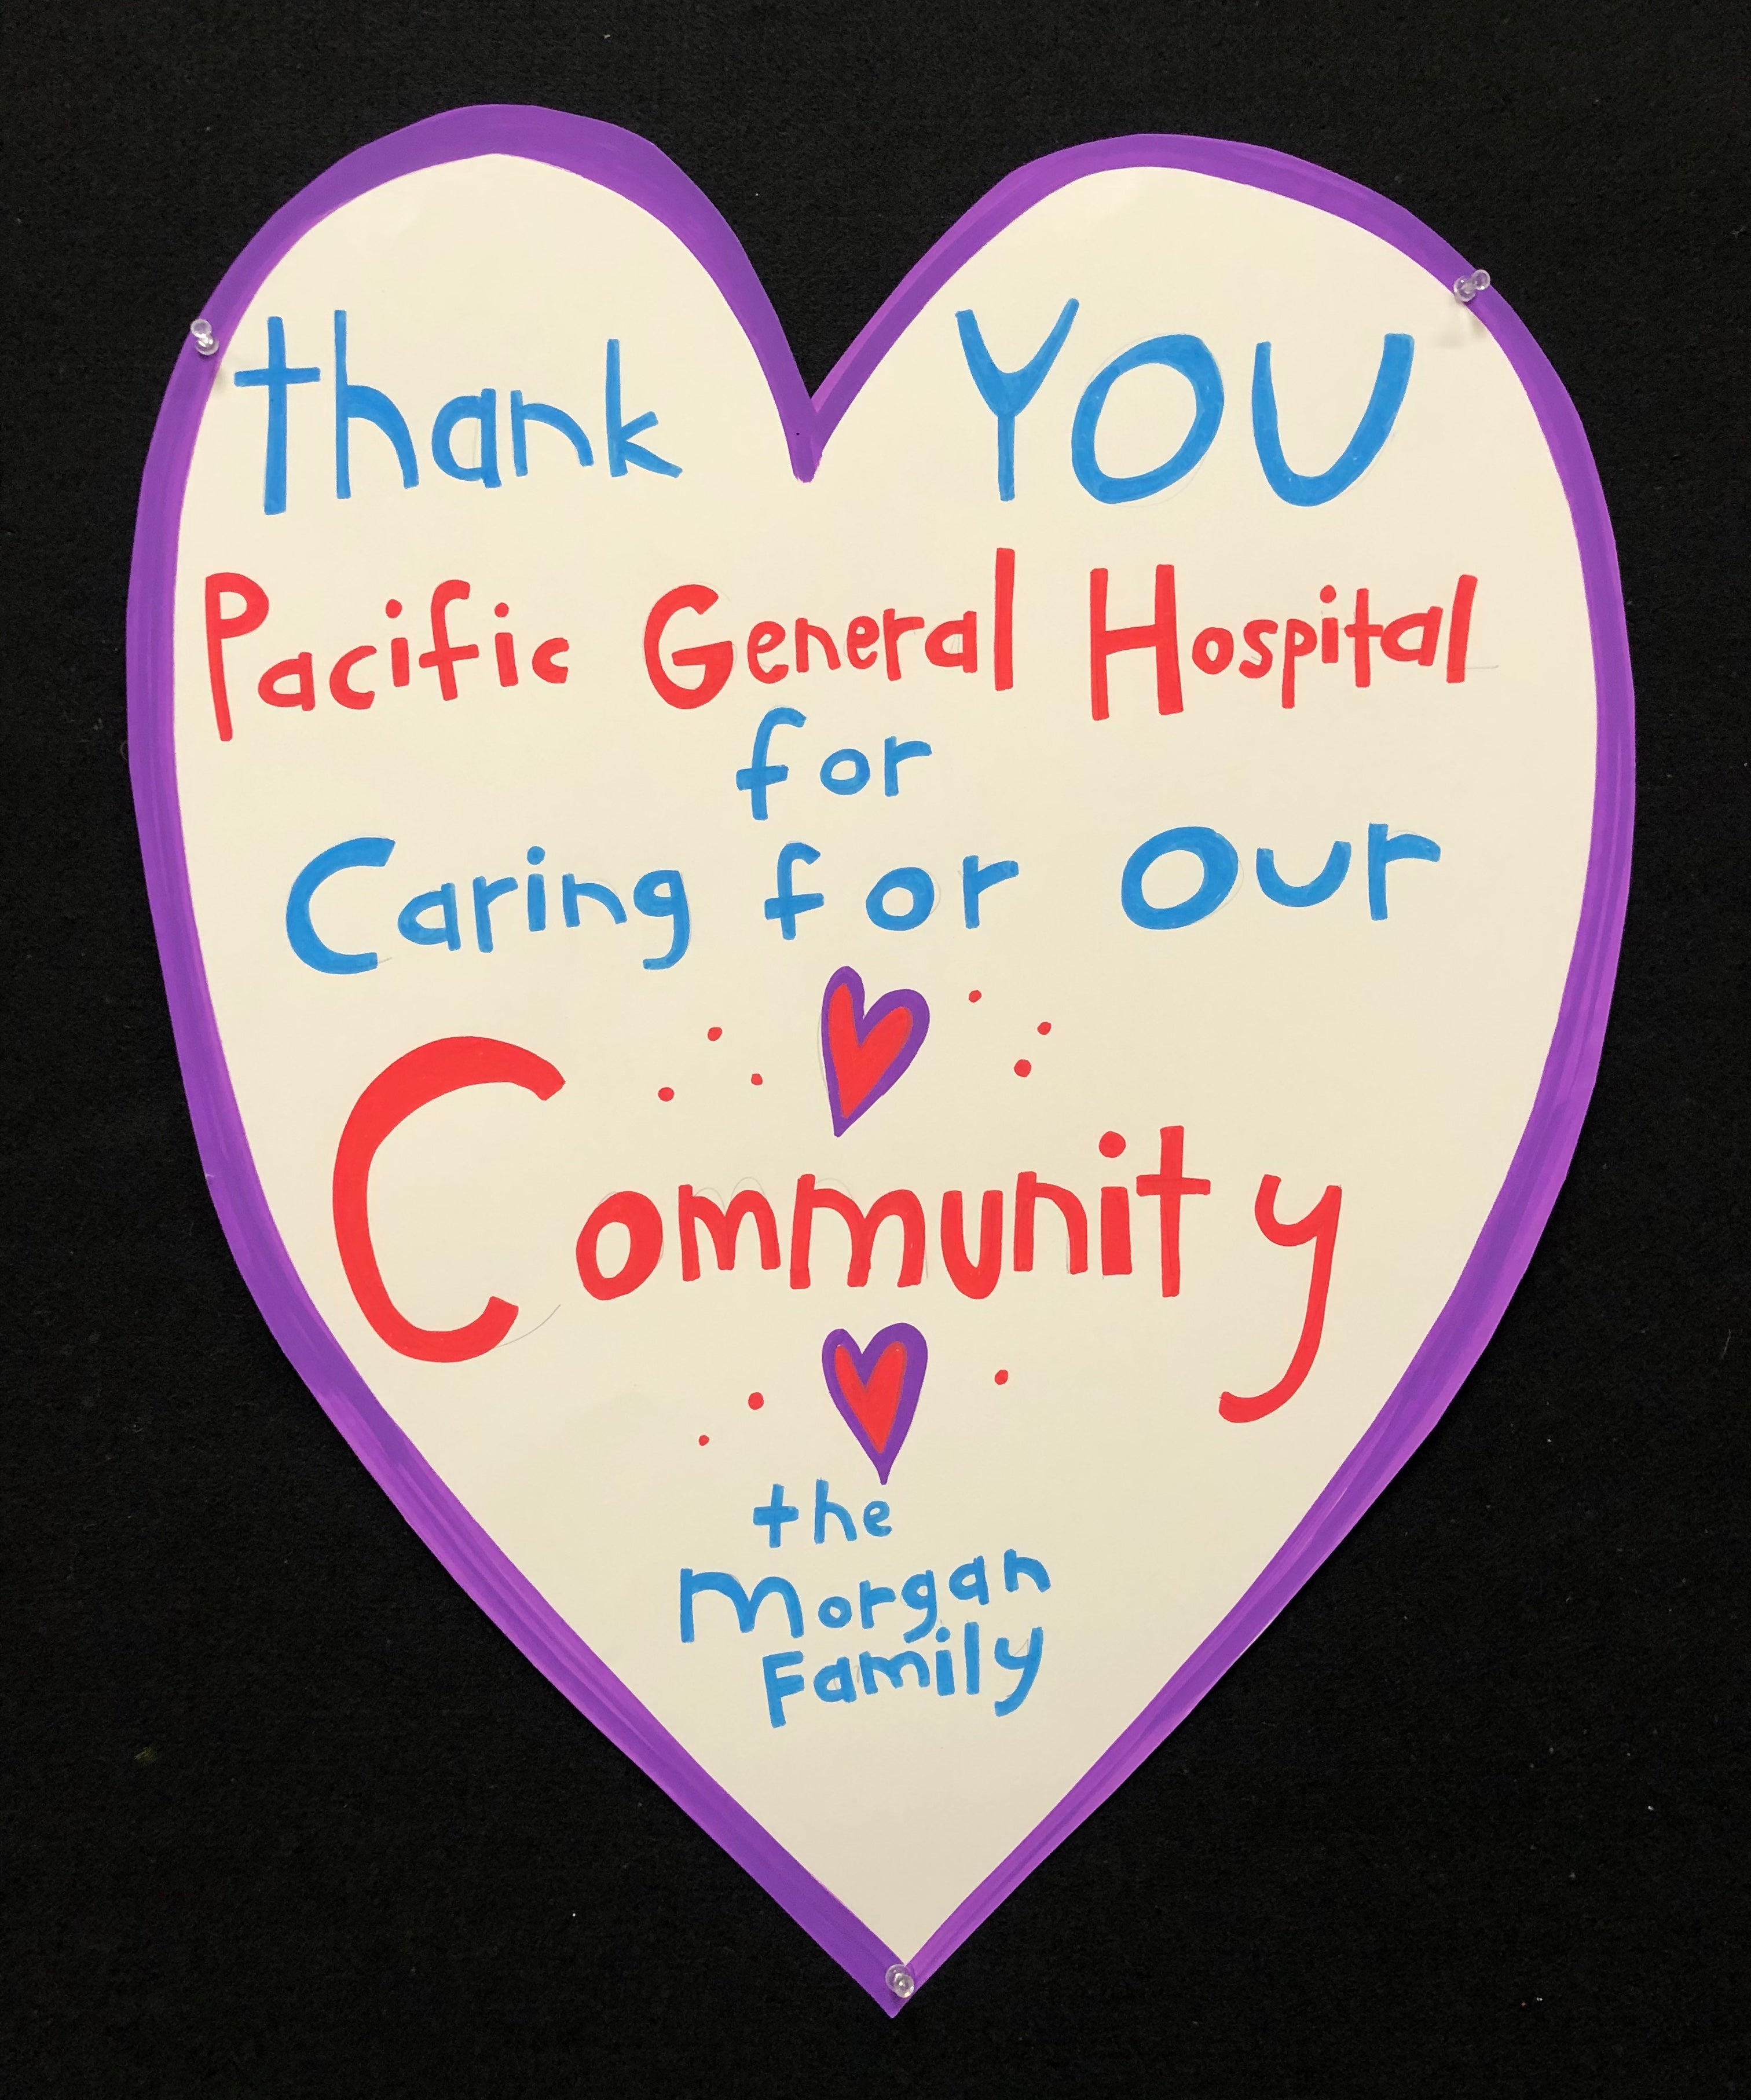 thank YOU
Pacific General Hospital
for
Caring for our
Community
the
Morgan
Family